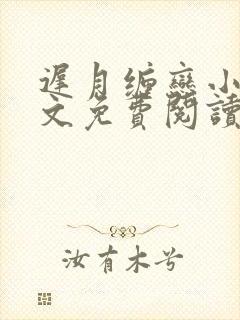 遲月缅戀小
文免費閱讀
汝有木兮